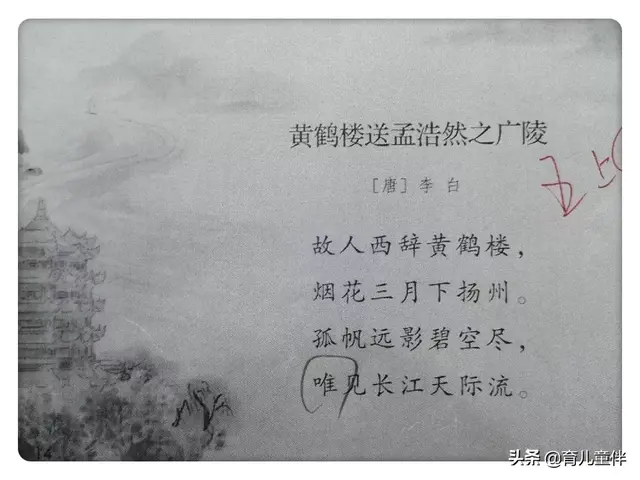 黄鹤楼送孟浩然之广陵
[唐] 李白
五上
故人西辞黄鹤楼，
烟花三月下扬州。
孤帆远影碧空尽，
唯见长江天际流。
14
头条 @育儿童伴